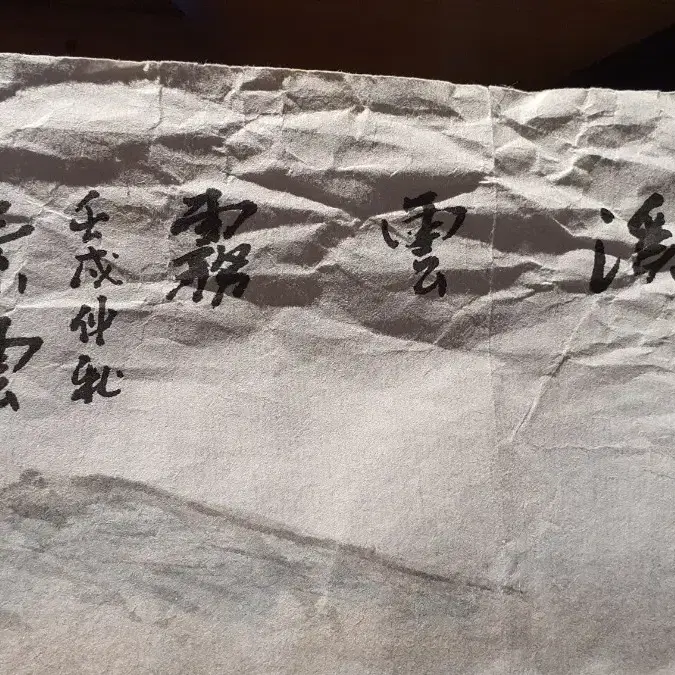 雲霧
壬戌仲秋
雲